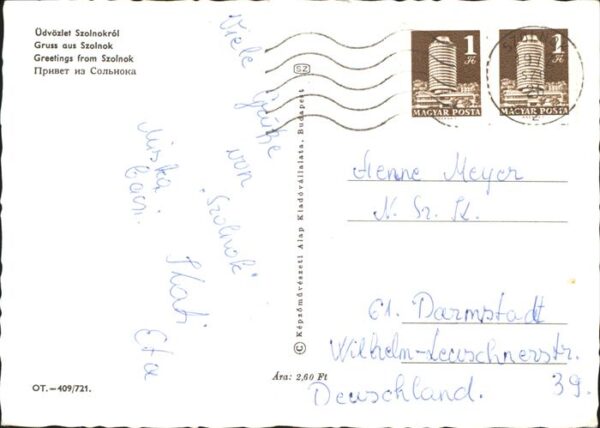 Üdvözlet Szolnokról
Gruss aus Szolnok
Greetings from Szolnok
Привет из Сольнока
SZ
1 Ft
MAGYAR POSTA
1 Ft
MAGYAR POSTA
Viele Grüße
von
"Szolnok"
Miska
bácsi
Kati
Eta
© Képzőművészeti Alap Kiadóvállalata, Budapest
Henne Meyer
N. Sz. K.
61. Darmstadt
Wilhelm-Leuschnerstr.
39.
Deuschland.
Ára: 2,60 Ft
OT.—409/721.